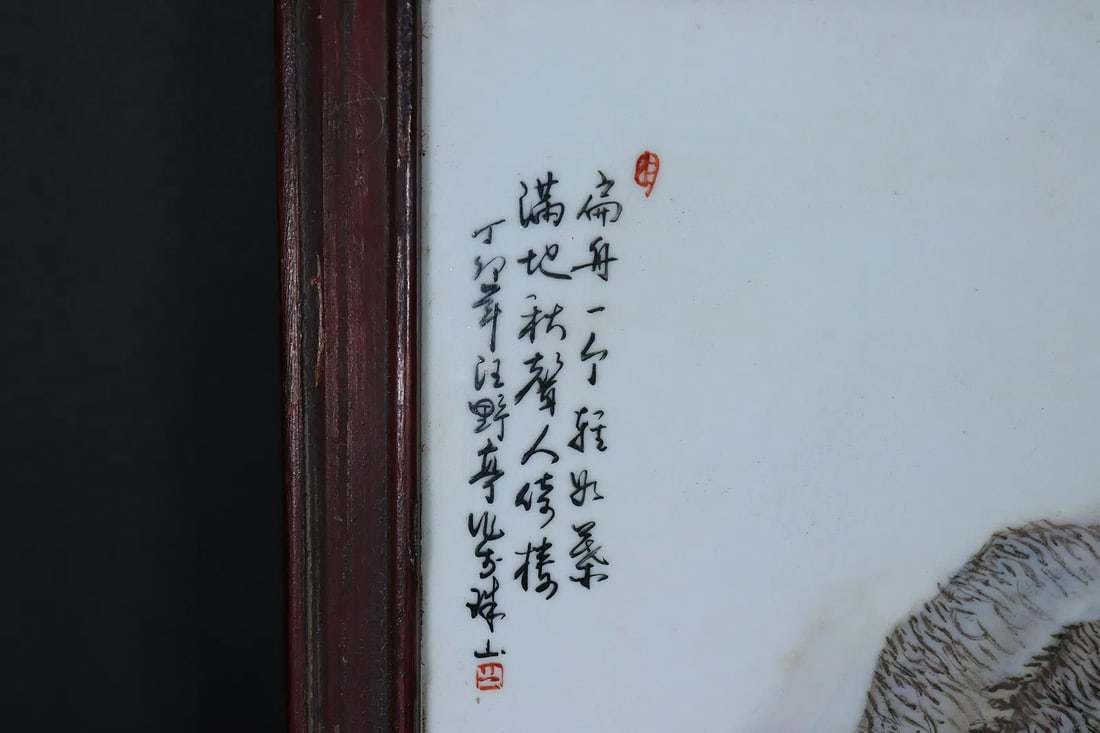 扁舟一个轻如葉
满地秋聲人倚楼
丁卯年汪野亭作於珠山